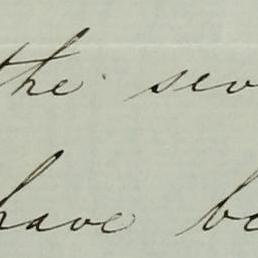 the sev
have be